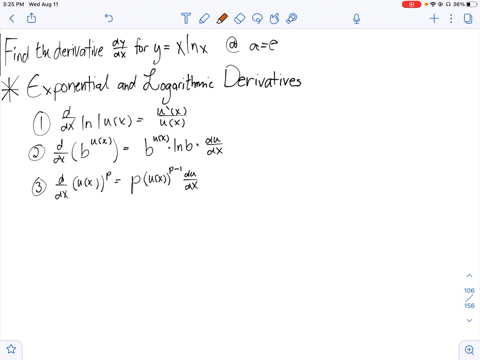 3:25 PM Wed Aug 11
36%
Find the derivative dy/dx for y = x ln x @ a=e
* Exponential and Logarithmic Derivatives
① d/dx ln |u(x)| = u'(x)/u(x)
② d/dx (b^u(x)) = b^u(x) · ln b · du/dx
③ d/dx (u(x))^p = p (u(x))^p-1 du/dx
106
/
156